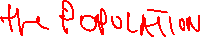 the POPULATION